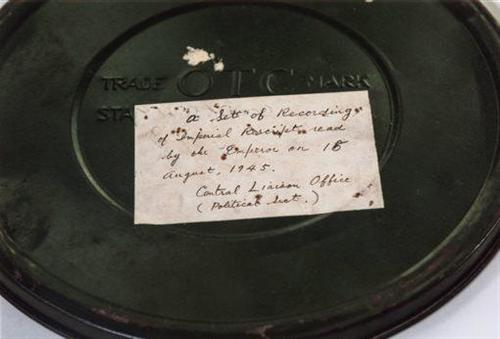 TRADE OTC MARK
STA
"A Set" of Recordings
of Imperial Rescript read
by the Emperor on 15
August, 1945.
Central Liaison Office
(Political Sect.)